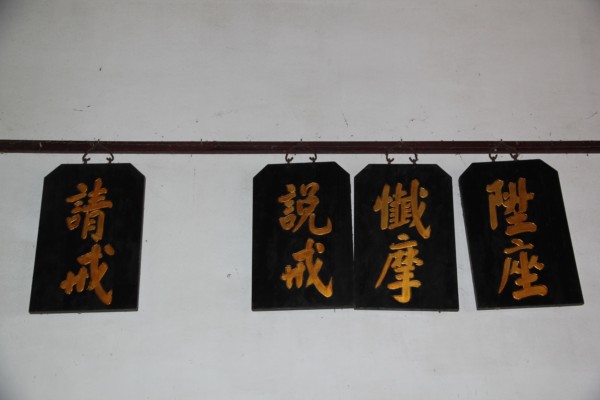 陞座
懺摩
説戒
請戒